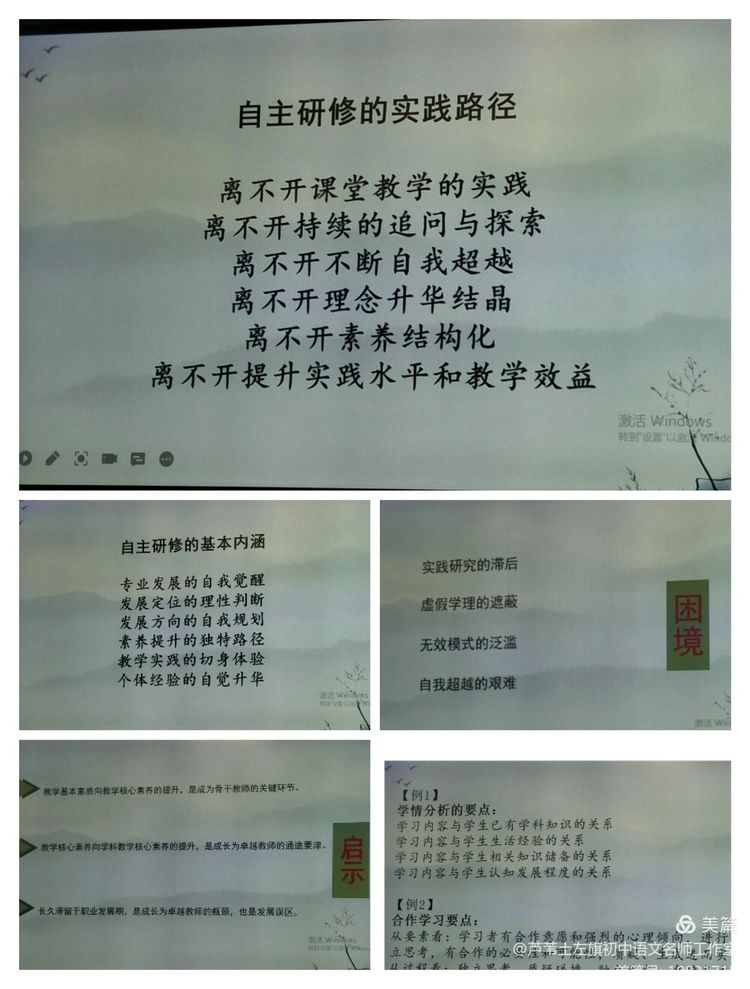 自主研修的实践路径
离不开课堂教学的实践
离不开持续的追问与探索
离不开不断自我超越
离不开理念升华结晶
离不开素养结构化
离不开提升实践水平和教学效益
激活 Windows
转到"设置"以激活 Windo
自主研修的基本内涵
专业发展的自我觉醒
发展定位的理性判断
发展方向的自我规划
素养提升的独特路径
教学实践的切身体验
个体经验的自觉升华
激活 Windows
实践研究的滞后
虚假学理的遮蔽
无效模式的泛滥
自我超越的艰难
困境
激活 Wind
教学基本素质向教学核心素养的提升，是成为骨干教师的关键环节。
教学核心素养向学科教学核心素养的提升，是成长为卓越教师的通途要津。
长久滞留于职业发展期，是成长为卓越教师的瓶颈，也是发展误区。
启示
激活 Windows
【例1】
学情分析的要点：
学习内容与学生已有学科知识的关系
学习内容与学生生活经验的关系
学习内容与学生相关知识储备的关系
学习内容与学生认知发展程度的关系
【例2】
合作学习要点：
从要素看：学习者有合作意愿和强烈的心理倾向，进行
立思考，有合作的必要性和
美篇
@芦苇土左旗初中语文名师工作室